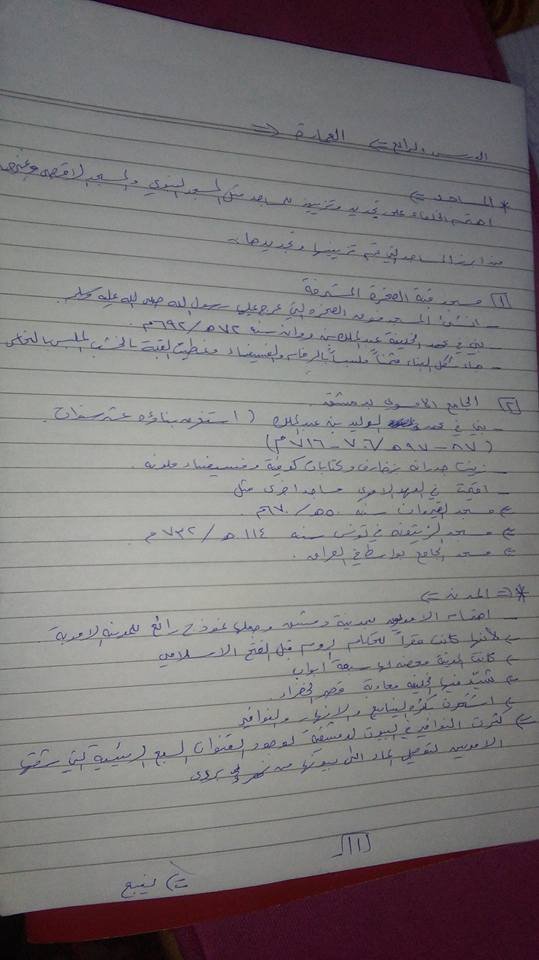 الدرس الرابع <= العمارة <=
* المساجد <=
اهتم الخلفاء على تجديد وتزيين المساجد مثل المسجد النبوي والمسجد الاقصى وغيرها
من ابرز المساجد التي تم تزيينها وتجديدها :-
1 مسجد قبة الصخرة المشرفة
- انشئ المسجد فوق الصخرة التي عرج عليها رسول الله صلى الله عليه وسلم
- بني في عهد الخليفة عبد الملك بن مروان سنة 72هـ/692م
- جاء شكل البناء مثمناً ملبساً بالرخام والفسيفساء وغطيت القبة بالخشب الملبس بالنحاس
2 الجامع الاموي بدمشق
- بني في عهد الوليد بن عبد الملك ( استغرق بناؤه عشر سنوات
(87-97هـ/706-716م)
- زينت جدرانه بزخارف وكتابات كوفية وفسيفساء ملونة .
- اقيمت في العهد الاموي مساجد اخرى مثل
<= مسجد القيروان سنة 50هـ/670م .
<= مسجد الزيتونة في تونس سنة 114هـ/732م
<= مسجد الجامع بواسط في العراق .
* <= المدن <=
اهتم الامويين بمدينة دمشق وجعلها نموذج رائع للمدينة الاموية
<= لأنها كانت مقراً للحكام الروم قبل الفتح الاسلامي
<= كانت المدينة محصنة لها سبعة أبواب
<= شيد فيها الخليفة معاوية قصر الخضراء .
<= اشتهرت بكثرة الينابيع والازهار والنوافير
<= كثرت النوافير في البيوت الدمشقية لوجود القنوات السبع الرئيسية التي شقها
الامويين لتوصيل الماء الى بيوتها من نهر بردى
11
<= يتبع